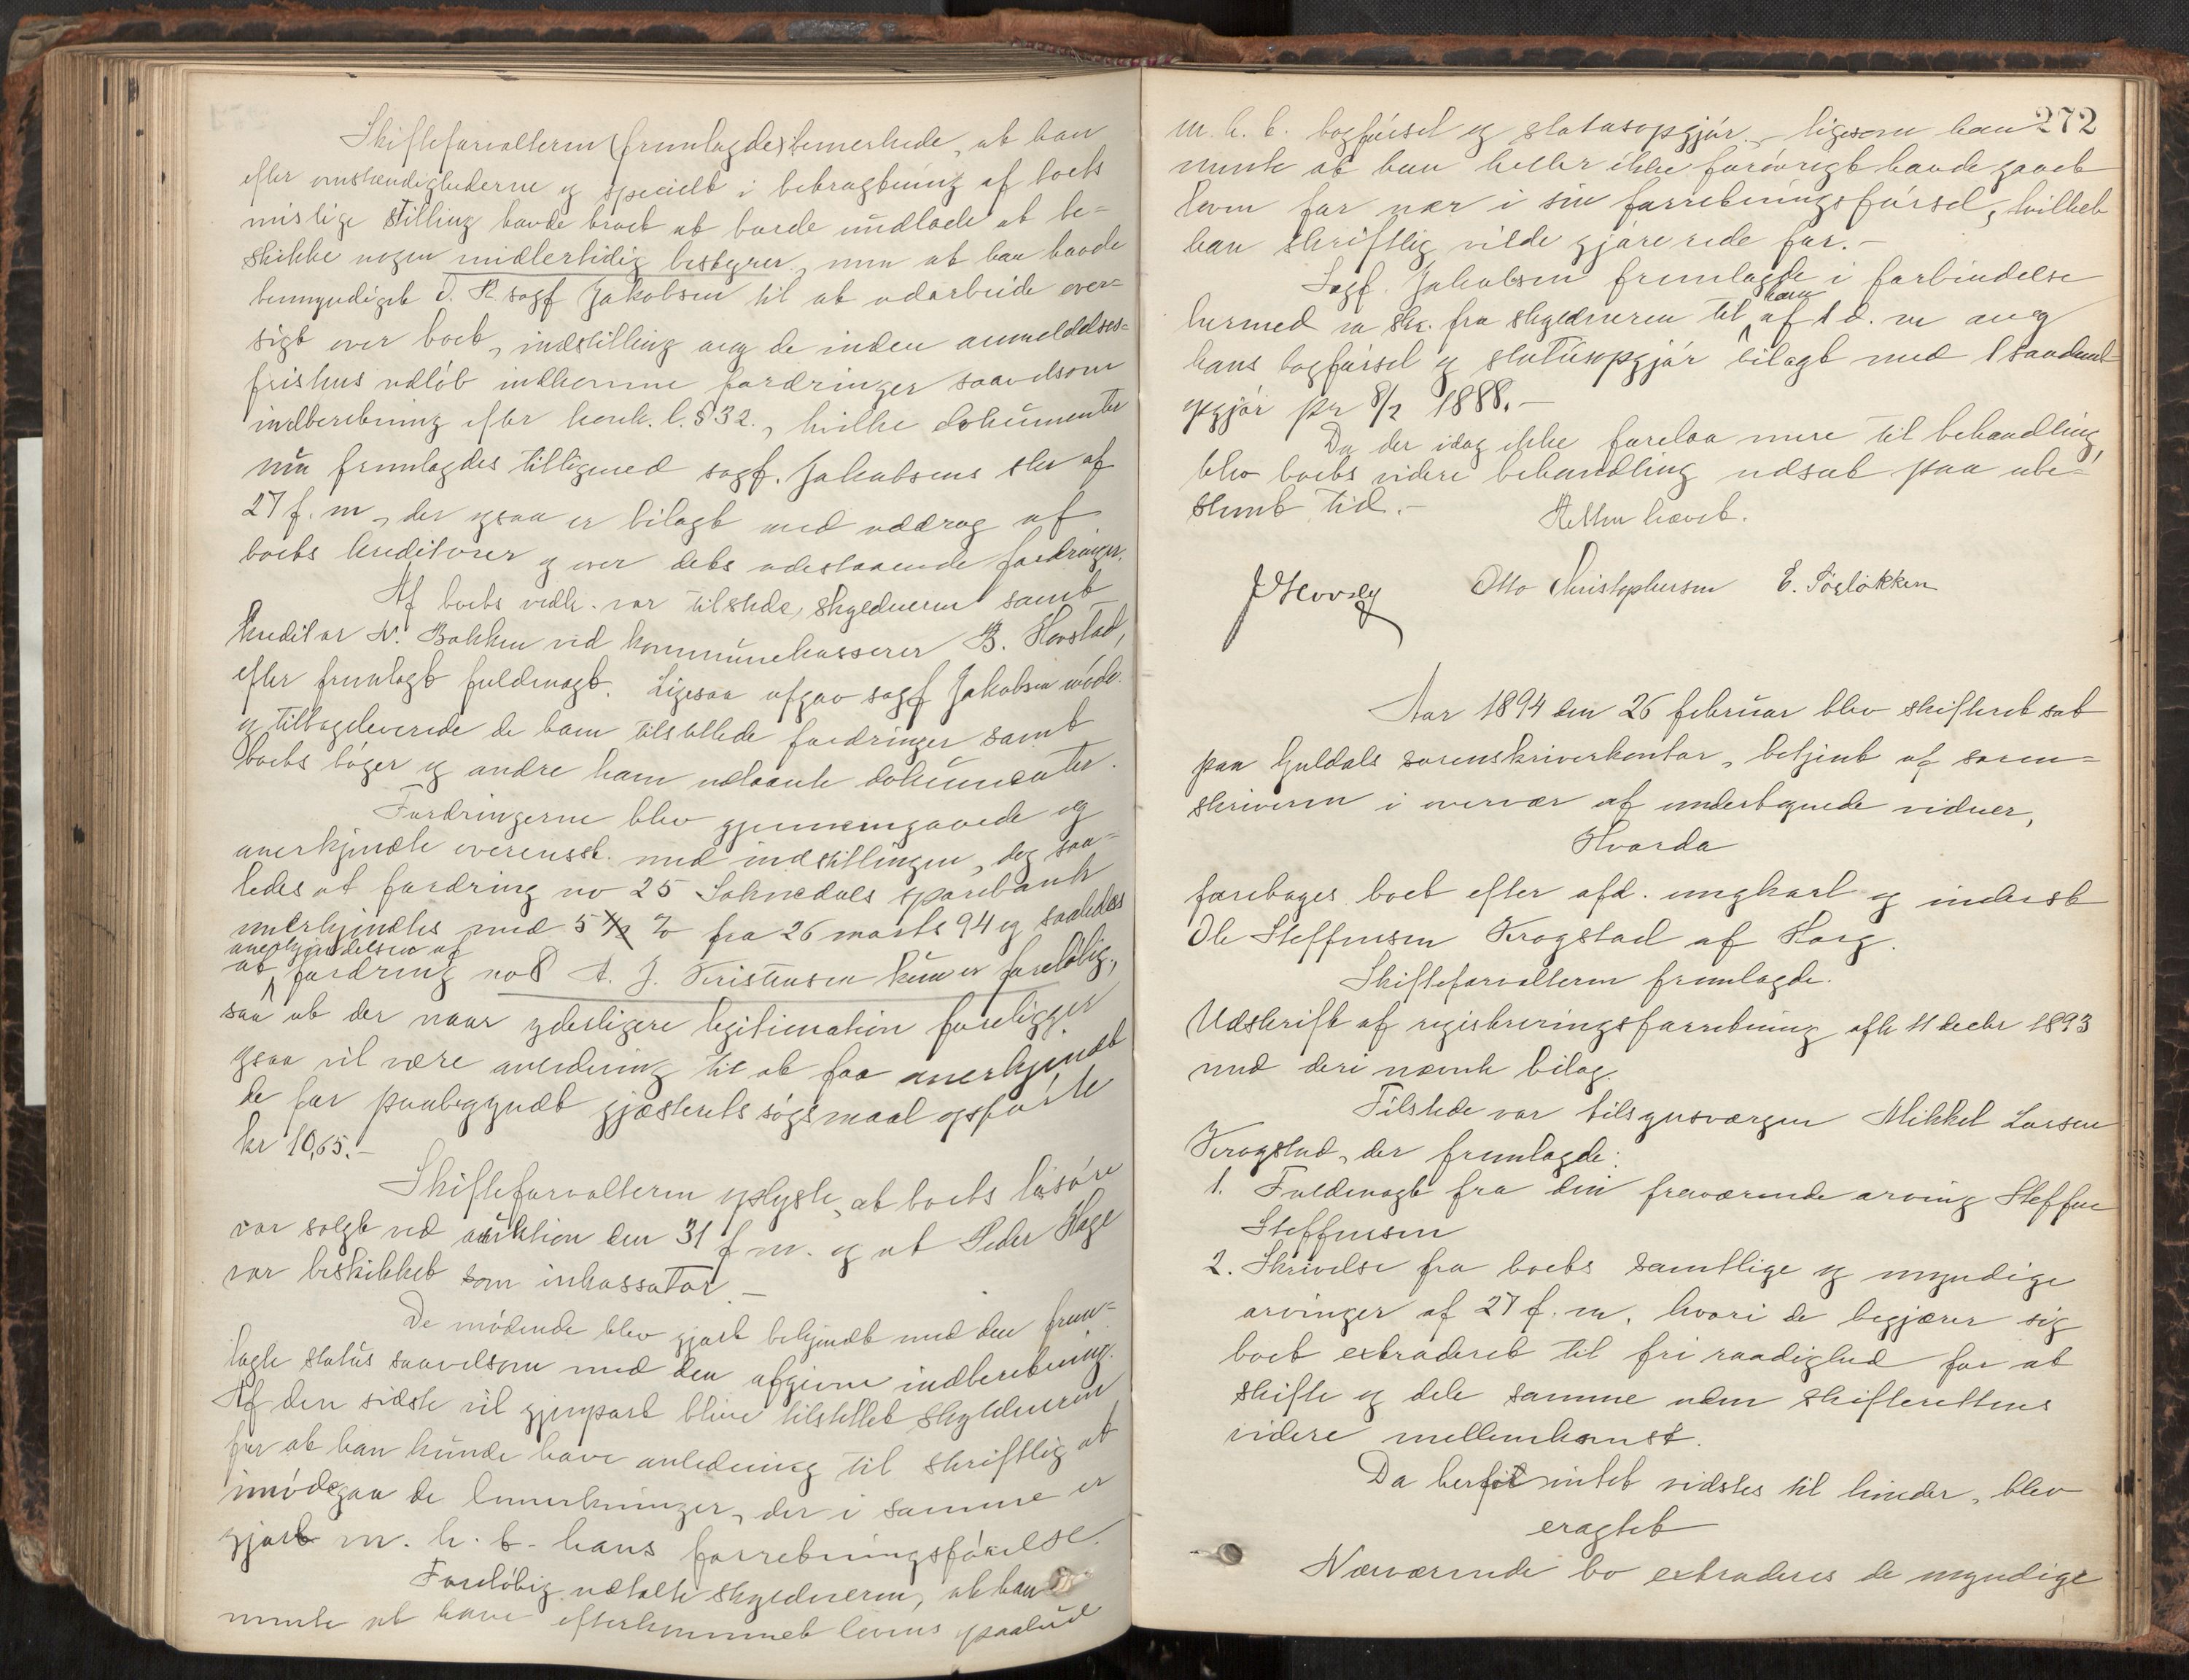 Skifteforvalteren (fremlagde) bemerkede, at han
efter omstændighederne og specielt i betragtning af boets
mislige stilling havde troet at burde undlade at be-
skikke nogen midlertidig bestyrer, men at han havde
bemyndiget O. R. sagf Jakobsen til at udarbeide over-
sigt over boet, indstilling ang de inden anmeldelses-
fristens udløb indkomne fordringer saavelsom
indberetning efter konk. l. § 32., hvilke dokumenter
nu fremlagdes tilligemed sagf. Jakobsens skr af
27 f. m, der ogsaa er bilagt med uddrag af
boets kreditorer og over dets udestaaende fordringer.
Af boets vedk. var tilstede, skyldneren samt
kreditor N. Bakken ved kommunekasserer B. Hovstad,
efter fremlagt fuldmagt. Ligesaa afgav sagf Jakobsen møde
og tilbageleverede de ham tilstillede fordringer samt
boets bøger og andre ham udlaante dokumenter.
Fordringerne blev gjennemgaaede og
anerkjendte overensst. med indstillingen, dog saa-
ledes at fordring no 25 Soknedals sparebank
anerkjendtes med 5 % fra 26 marts 94 og saaledes
anerkjendelsen af
at fordring no 8 A. J. Kristensen kun er foreløbig,
saa at der naar yderligere legitimation foreligger
ogsaa vil være anledning til at faa anerkjendt
de for paabegyndt gjæsterets søgsmaal opførte
kr 10,65.-
Skifteforvalteren oplyste, at boets løsøre
var solgt ved auktion den 31 f m. og at Peder Hage
var beskikket som inkassator.-
De mødende blev gjort bekjendt med den frem-
lagte status saavelsom med den afgivne indberetning.
Af den sidste vil gjenpart blive tilstillet skyldneren
for at han kunde have anledning til skriftlig at
imødegaa de bemerkninger, der i samme er
gjort m. h. t. hans forretningsførelse.
Foreløbig udtalte skyldneren, at han
mente at have efterkommet lovens paabud
272
m. h. t. bogførsel og statusopgjør, - ligesom han
mente at han heller ikke forøvrigt havde gaaet
loven for nær i sin forretningsførsel, hvilket
han skriftlig vilde gjøre rede for.-
Sagf. Jakobsen fremlagde i forbindelse
ham
hermed en skr. fra skyldneren til af 1 d. m ang
hans bogførsel og statusopgjør bilagt med 1 saadant
opgjør pr 8/2 1888.-
Da der idag ikke forelaa mere til behandling,
blev boets videre behandling udsat paa ube-
stemt tid.-
Retten hævet.
Otto Christophersen E. Sørløkken
Aar 1894 den 26 februar blev skifteret sat
paa Guldals sorenskriverkontor, betjent af soren-
skriveren i overvær af undertegnede vidner,
Hvorda
foretoges boet efter afd. ungkarl og inderst
Ole Steffensen Krogstad af Horg.
Skifteforvalteren fremlagde.
Udskrift af registreringsforretning afh 11 decbr 1893
med deri nævnte bilag.
Tilstede var tilsynsværgen Mikkel Larsen
Krogstad, der fremlagde:
1. Fuldmagt fra den fraværende arving Steffen
Steffensen
2. Skrivelse fra boets samtlige og myndige
arvinger af 27 f. m. hvori de begjærer sig
boet extraderet til fri raadighed for at
skifte og dele samme uden skifterettens
videre mellemkomst.
Da hertil intet vidstes til hinder, blev
eragtet
Nærværende bo extraderes de myndige